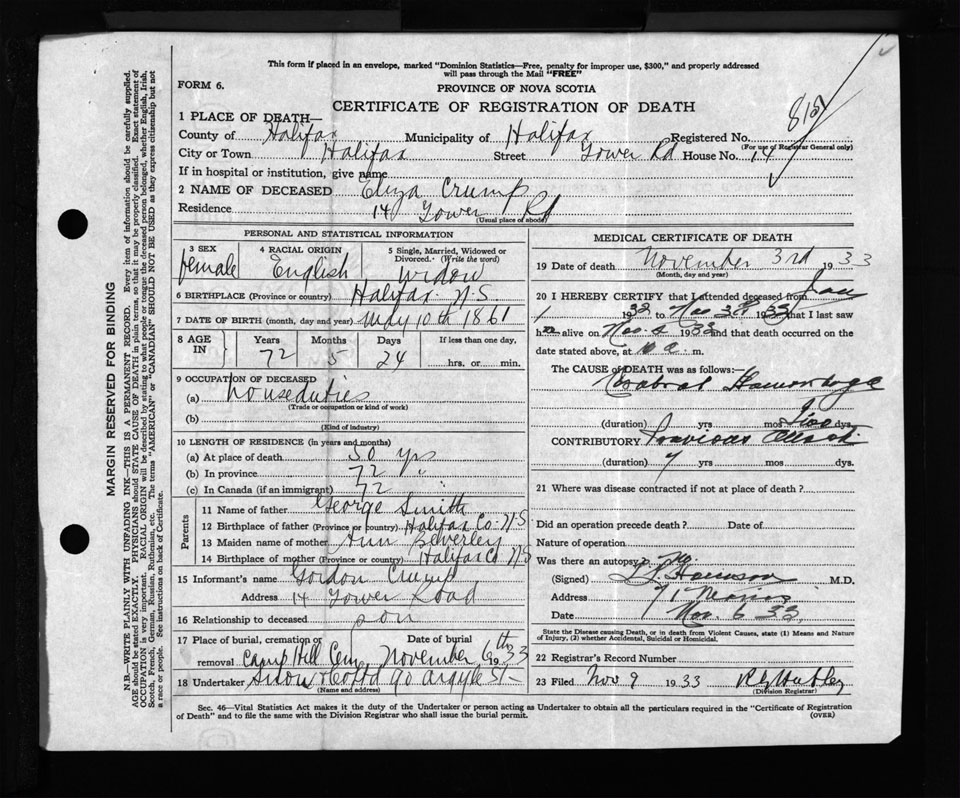 This form if placed in an envelope, marked "Dominion Statistics—Free, penalty for improper use, $300," and properly addressed
will pass through the Mail "FREE"
FORM 6.
PROVINCE OF NOVA SCOTIA
CERTIFICATE OF REGISTRATION OF DEATH
1 PLACE OF DEATH—
County of Halifax Municipality of Halifax Registered No.
(For use of Registrar General only)
City or Town Halifax Street Tower Rd House No. 14
If in hospital or institution, give name
2 NAME OF DECEASED Eliza Crump
Residence 14 Tower Rd
(Usual place of abode)
PERSONAL AND STATISTICAL INFORMATION
3 SEX 4 RACIAL ORIGIN 5 Single, Married, Widowed or
Divorced. (Write the word)
female English widow
6 BIRTHPLACE (Province or country) Halifax N.S.
7 DATE OF BIRTH (month, day and year) May 10th 1861
8 AGE IN Years Months Days If less than one day,
72 5 24 hrs. or min.
9 OCCUPATION OF DECEASED
(a) houseduties
(Trade or occupation or kind of work)
(b)
(Kind of industry)
10 LENGTH OF RESIDENCE (in years and months)
(a) At place of death 50 yrs
(b) In province 72 "
(c) In Canada (if an immigrant) 72 "
Parents
11 Name of father George Smith
12 Birthplace of father (Province or country) Halifax Co. N.S
13 Maiden name of mother Ann Beverley
14 Birthplace of mother (Province or country) Halifax Co N S
15 Informant's name Gordon Crump
Address 14 Tower Road
16 Relationship to deceased son
17 Place of burial, cremation or Date of burial
removal Camp Hill Cem, November 6th 1933
18 Undertaker Snow & Co Ltd 90 Argyle St
(Name and address)
MEDICAL CERTIFICATE OF DEATH
19 Date of death November 3rd 1933
(Month, day and year)
20 I HEREBY CERTIFY that I attended deceased from Jan
1 1932 to Nov 3rd 1933 that I last saw
h alive on Nov. 1933 and that death occurred on the
date stated above, at m.
The CAUSE of DEATH was as follows:—
Cerebral Haemorrhage
(duration) yrs mos Two dys.
CONTRIBUTORY Previous Attack
(duration) 7 yrs mos. dys.
21 Where was disease contracted if not at place of death?
Did an operation precede death? Date of
Nature of operation
Was there an autopsy? No
(Signed) M.D.
Address 71 Morris
Date Nov. 6 33
State the Disease causing Death, or in death from Violent Causes, state (1) Means and Nature
of Injury, (2) whether Accidental, Suicidal or Homicidal.
22 Registrar's Record Number
23 Filed Nov 9 1933
(Division Registrar)
Sec. 46—Vital Statistics Act makes it the duty of the Undertaker or person acting as Undertaker to obtain all the particulars required in the "Certificate of Registration
of Death" and to file the same with the Division Registrar who shall issue the burial permit.
(OVER)
MARGIN RESERVED FOR BINDING
N.B.—WRITE PLAINLY WITH UNFADING INK—THIS IS A PERMANENT RECORD. Every item of information should be carefully supplied.
AGE should be stated EXACTLY. PHYSICIANS should STATE CAUSE OF DEATH in plain terms, so that it may be properly classified. Exact statement of
OCCUPATION is very important. RACIAL ORIGIN will be described by stating to what people or tongue the deceased person belonged, whether English, Irish,
Scotch, French, German, Russian, Ruthenian, etc. The terms "AMERICAN" or "CANADIAN" SHOULD NOT BE USED as they express citizenship but not
a race or people. See instructions on back of Certificate.